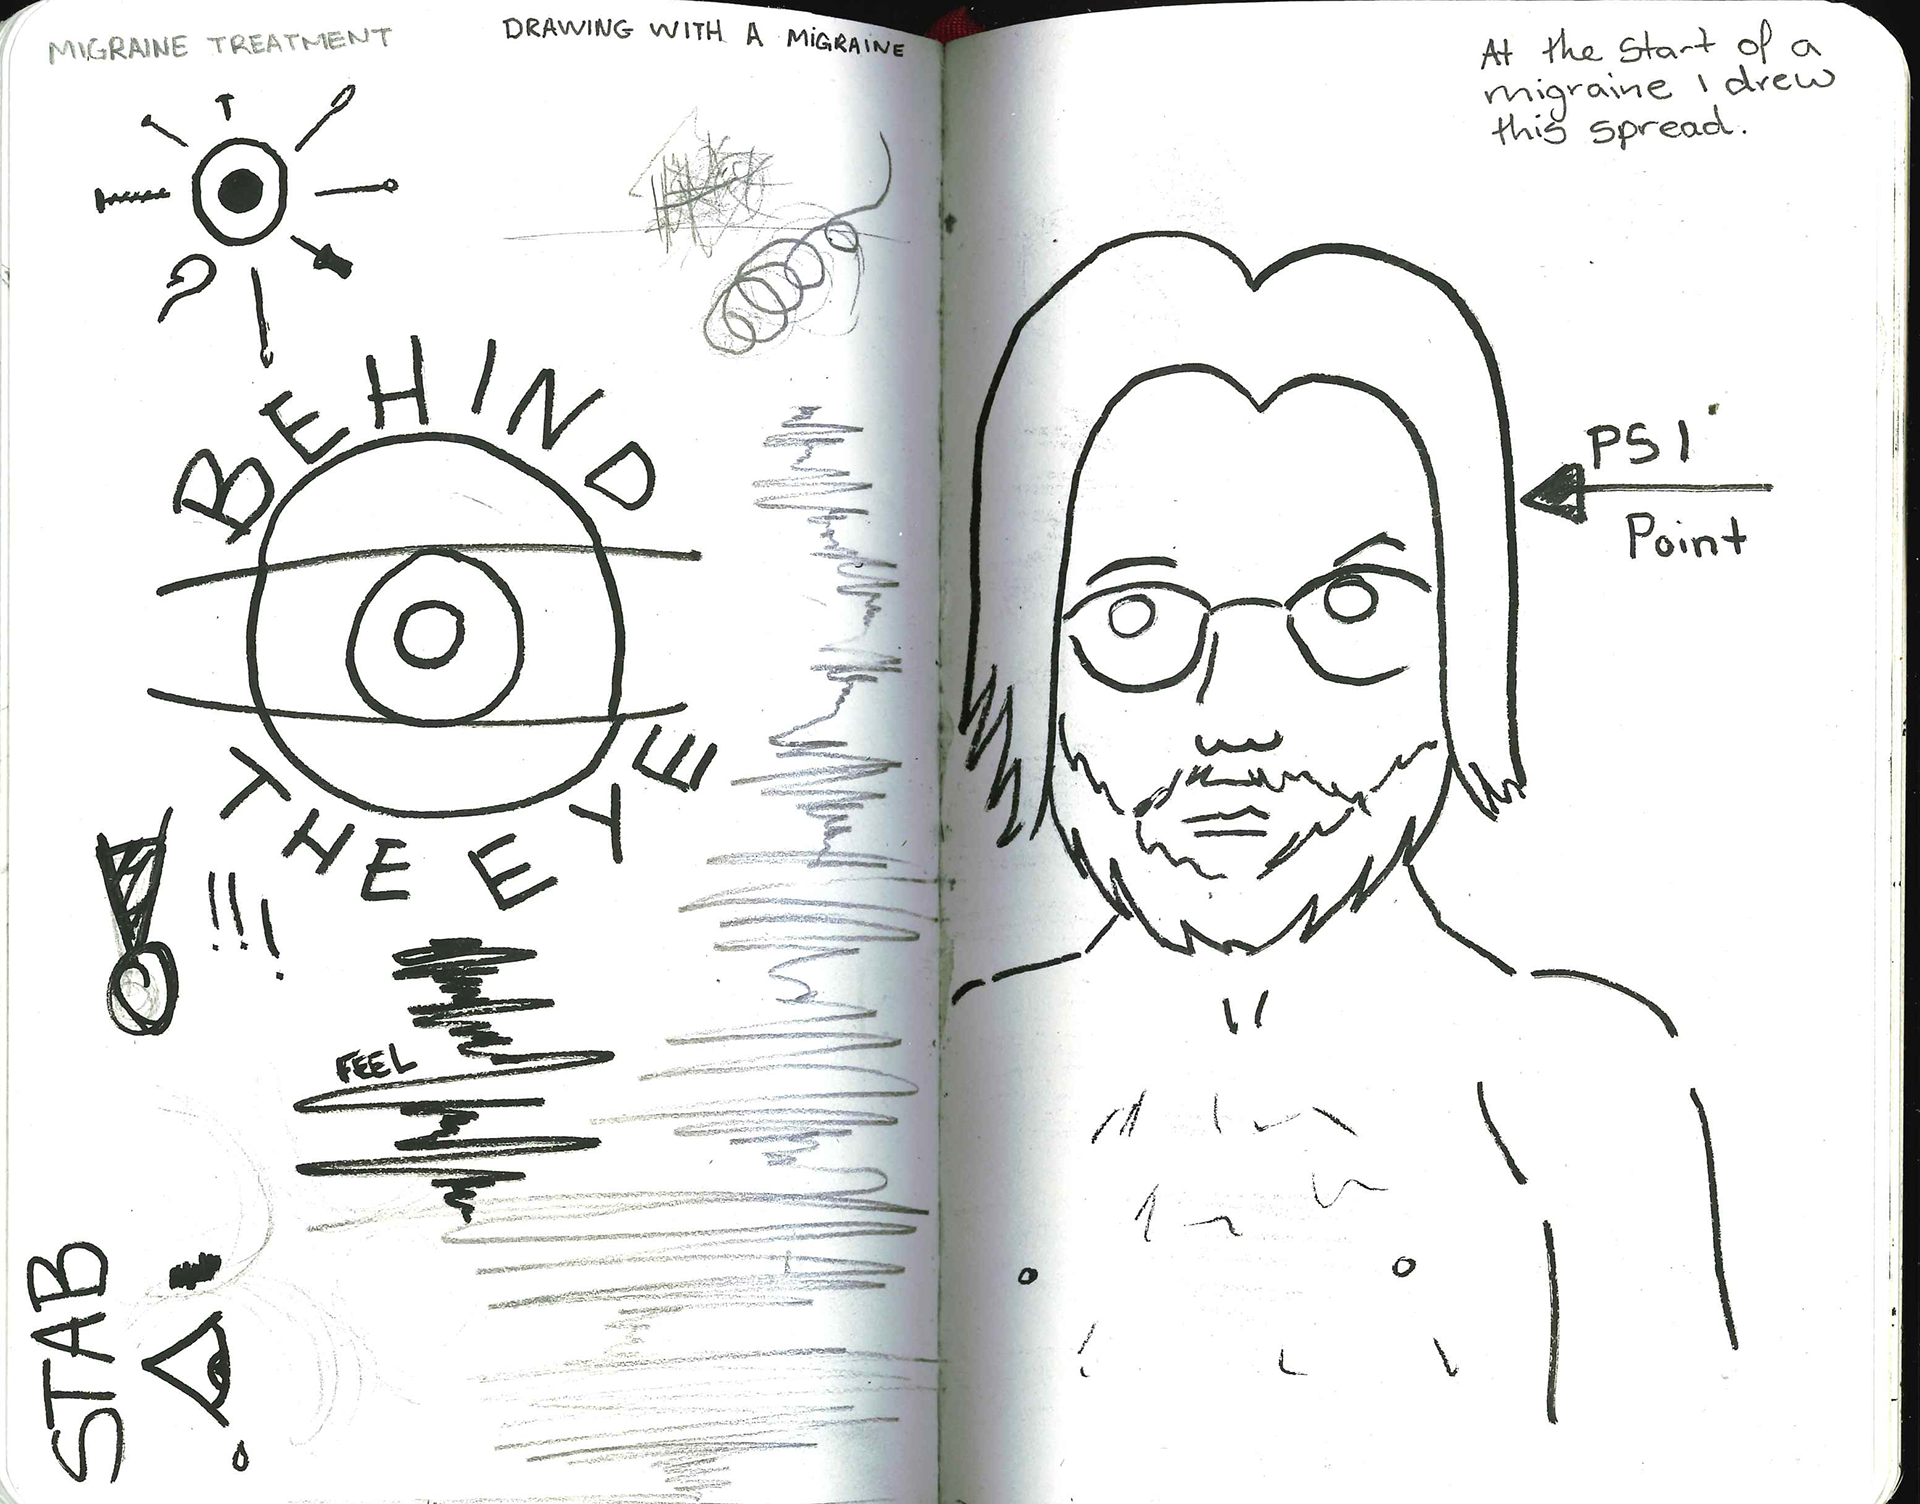 MIGRAINE TREATMENT
DRAWING WITH A MIGRAINE
BEHIND
THE EYE
!!!
FEEL
STAB
At the start of a
migraine I drew
this spread.
PSI
Point